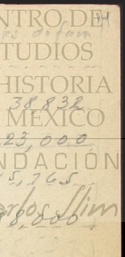 NTRO DE
TUDIOS
HISTORIA
38,832
MÉXICO
23,000
NDACIÓN
5,765
Carlos Slim
8,000